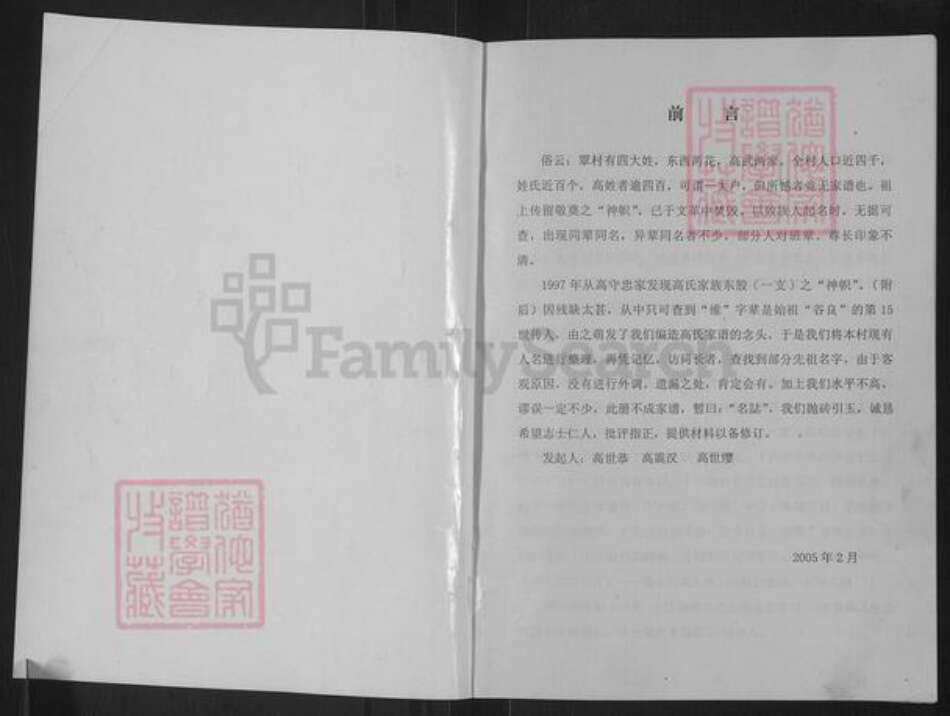 前 言
俗云：覃村有四大姓，东西两花，高武两家，全村人口近四千，
姓氏近百个，高姓者逾四百，可谓一大户，但所憾者竟无家谱也。祖
上传留敬奠之“神帜”，已于文革中焚毁，以致族人起名时，无据可
查，出现同辈同名，异辈同名者不少，部分人对班辈，尊长印象不
清。
1997 年从高守忠家发现高氏家族东股（一支）之“神帜”，（附
后）因残缺太甚，从中只可查到“维”字辈是始祖“谷良”的第 15
世转人，由之萌发了我们编造高氏家谱的念头，于是我们将本村现有
人名进行整理，再凭记忆，访问长者，查找到部分先祖名字，由于客
观原因，没有进行外调，遗漏之处，肯定会有，加上我们水平不高，
谬误一定不少，此册不成家谱，暂曰：“名誌”，我们抛砖引玉，诚恳
希望志士仁人，批评指正，提供材料以备修订。
发起人：高世恭 高震汉 高世璎
2005 年 2 月
FamilySearch